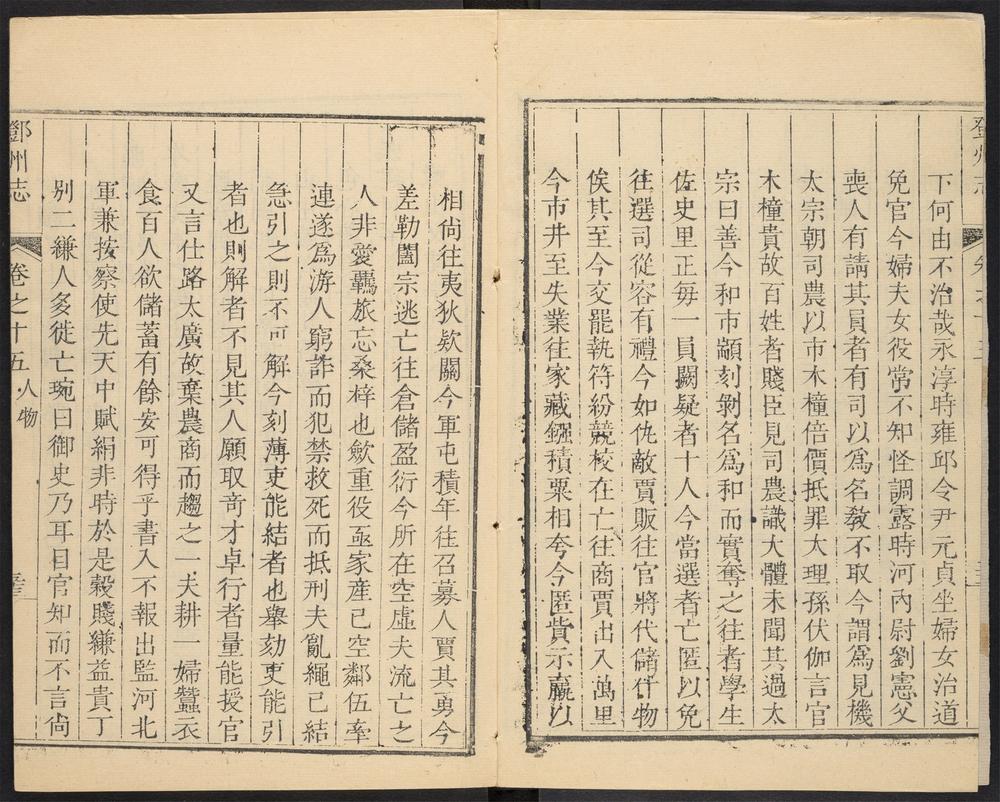 下何由不治哉永淳時雍邱令尹元貞坐婦女治道
免官今婦夫女役常不知怪調露時河內尉劉憲父
喪人有請其員者有司以為名敎不取今謂為見機
太宗朝司農以市木橦倍價抵罪大理孫伏伽言官
木橦貴故百姓者賤臣見司農識大體未聞其過太
宗曰善今和市顓刻剝名為和而實奪之往者學生
佐史里正每一員闕疑者十人今當選者亡匿以免
往選司從容有禮今如仇敵賈販往官將代儲什物
俟其至今交罷執符紛競校在亡往商賈出入萬里
今市井至失業往家藏鏹積粟相夸今匿貲示羸以
相尙往夷狄欵關今軍屯積年往召募人賈其勇今
差勒闔宗逃亡往倉儲盈衍今所在空虛夫流亡之
人非愛羈旅忘桑梓也歛重役亟家產已空鄰伍牽
連遂為游人窮詐而犯禁救死而抵刑夫亂繩已結
急引之則不可解今刻薄吏能結者也舉劾吏能引
者也則解者不見其人願取奇才卓行者量能授官
又言仕路太廣故棄農商而趨之一夫耕一婦蠶衣
食百人欲儲蓄有餘安可得乎書入不報出監河北
軍兼按察使先天中賦絹非時於是穀賤縑益貴丁
別二縑人多徙亡琬曰御史乃耳目官知而不言尙
鄧州志 卷之十五 人物